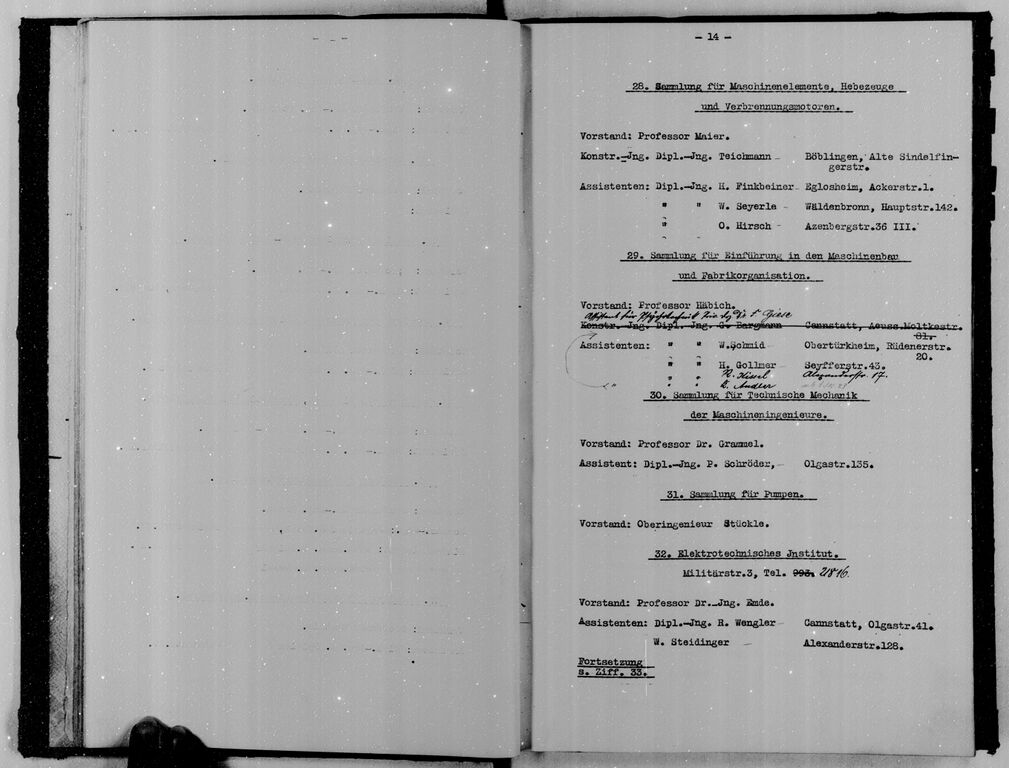 - 14 -
28. Sammlung für Maschinenelemente, Hebezeuge
und Verbrennungsmotoren.
Vorstand: Professor Maier.
Konstr.-Jng. Dipl.-Jng. Teichmann - Böblingen, Alte Sindelfin-
gerstr.
Assistenten: Dipl.-Jng. H. Finkbeiner - Eglosheim, Ackerstr.1.
" " W. Seyerle - Wäldenbronn, Hauptstr.142.
" O. Hirsch - Azenbergstr.36 III.
29. Sammlung für Einführung in den Maschinenbau
und Fabrikorganisation.
Vorstand: Professor Häbich.
Assistent für Psychotechnik Giese
Konstr. Jng. Dipl. Jng. G. Bargmann Cannstatt, Aeuss.Moltkestr.
81.
Assistenten: " " W.Schmid Obertürkheim, Rüdenerstr.
20.
" " H. Gollmer Seyfferstr.43.
" " Alexanderstr. 17.
" " "
30. Sammlung für Technische Mechanik
der Maschineningenieure.
Vorstand: Professor Dr. Grammel.
Assistent: Dipl.-Jng. P. Schröder, - Olgastr.135.
31. Sammlung für Pumpen.
Vorstand: Oberingenieur Stückle.
32. Elektrotechnisches Jnstitut.
Militärstr.3, Tel. 993. 21816.
Vorstand: Professor Dr.-Jng. Emde.
Assistenten: Dipl.-Jng. R. Wengler - Cannstatt, Olgastr.41.
W. Steidinger - Alexanderstr.128.
Fortsetzung
s. Ziff. 33.